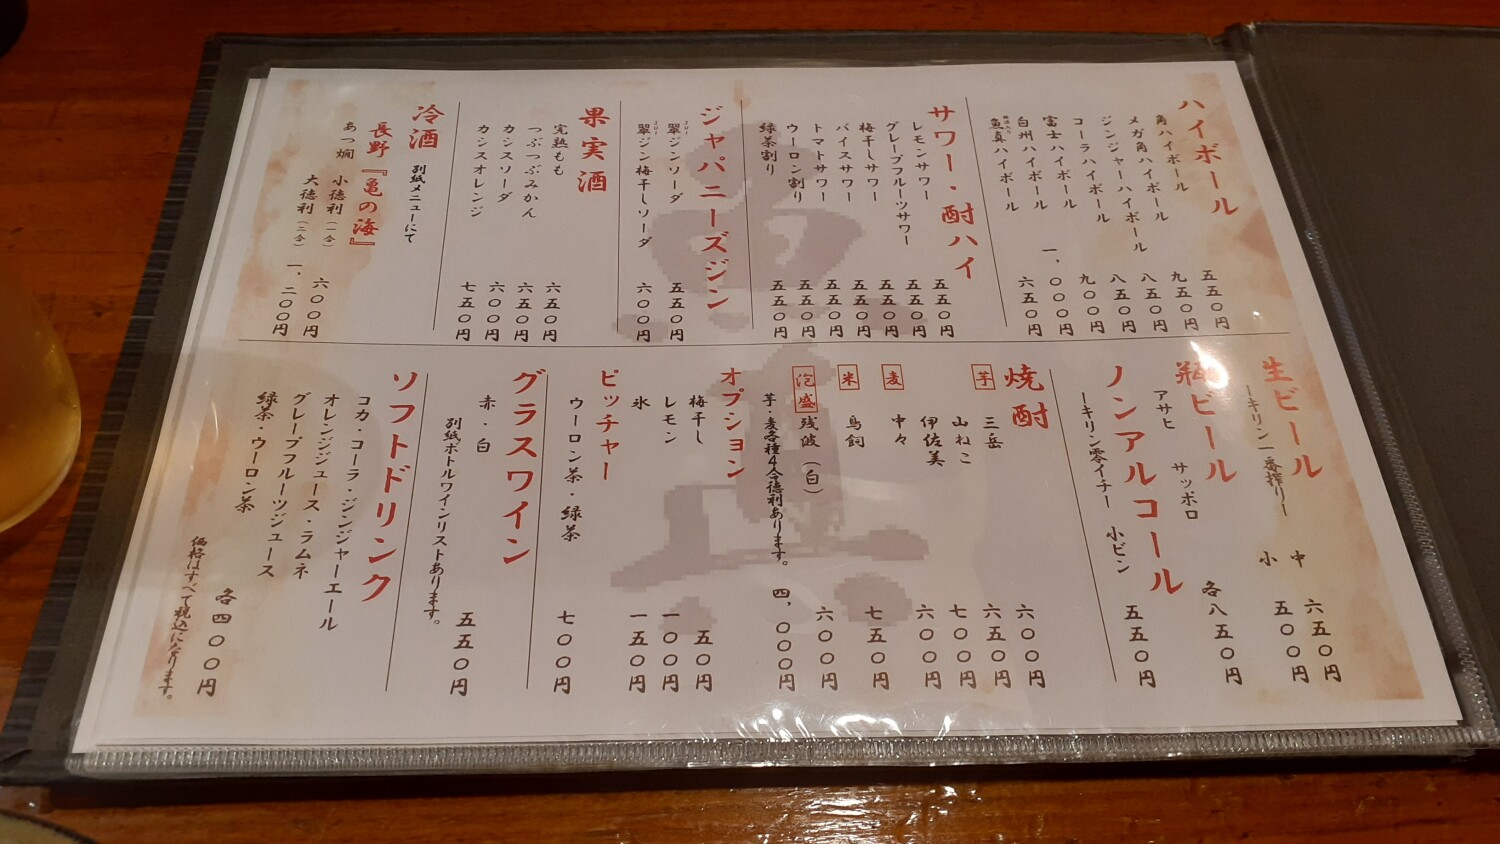 ハイボール
角ハイボール 五五〇円
メガ角ハイボール 九五〇円
ジンジャーハイボール 八五〇円
コーラハイボール 八五〇円
富士ハイボール 九〇〇円
白州ハイボール 一、〇〇〇円
魚真ハイボール 六五〇円
サワー・酎ハイ
レモンサワー 五五〇円
グレープフルーツサワー 五五〇円
梅干しサワー 五五〇円
バイスサワー 五五〇円
トマトサワー 五五〇円
ウーロン割り 五五〇円
緑茶割り 五五〇円
ジャパニーズジン
翠ジンソーダ 五五〇円
翠ジン梅干しソーダ 六〇〇円
果実酒
完熟もも 六五〇円
つぶつぶみかん 六五〇円
カシスソーダ 六〇〇円
カシスオレンジ 七五〇円
冷酒 別紙メニューにて
長野『亀の海』
あつ燗 小徳利(一合) 六〇〇円
大徳利(二合) 一、二〇〇円
生ビール
ーキリン一番搾りー 中 六五〇円
小 五〇〇円
瓶ビール
アサヒ サッポロ 各八五〇円
ノンアルコール
ーキリン零イチー 小ビン 五五〇円
焼酎
芋 三岳 六〇〇円
山ねこ 六五〇円
伊佐美 七〇〇円
麦 中々 六〇〇円
米 鳥飼 七五〇円
泡盛 残波(白) 六〇〇円
芋・麦各種4合徳利あります。 四、〇〇〇円
オプション
梅干し 五〇円
レモン 一〇〇円
氷 一五〇円
ピッチャー
ウーロン茶・緑茶 七〇〇円
グラスワイン
赤・白 五五〇円
別紙ボトルワインリストあります。
ソフトドリンク
コカ・コーラ・ジンジャーエール
オレンジジュース・ラムネ
グレープフルーツジュース
緑茶・ウーロン茶 各四〇〇円
価格はすべて税込になります。